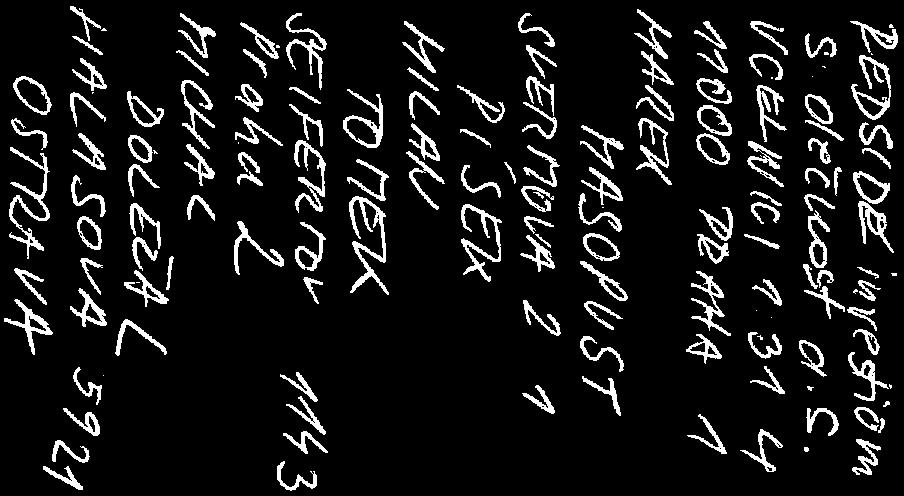 REDSIDE investiční
společnost a.s.
V CELNICI 1031 4
11000 PRAHA 1
MAREK
MASOPUST
SVERMOVA 2 1
PÍSEK
MILAN
TOMEK
SEIFERTOV 1143
Praha 2
MICHAL
DOLEZAL
HALASOVA 5921
OSTRAVA